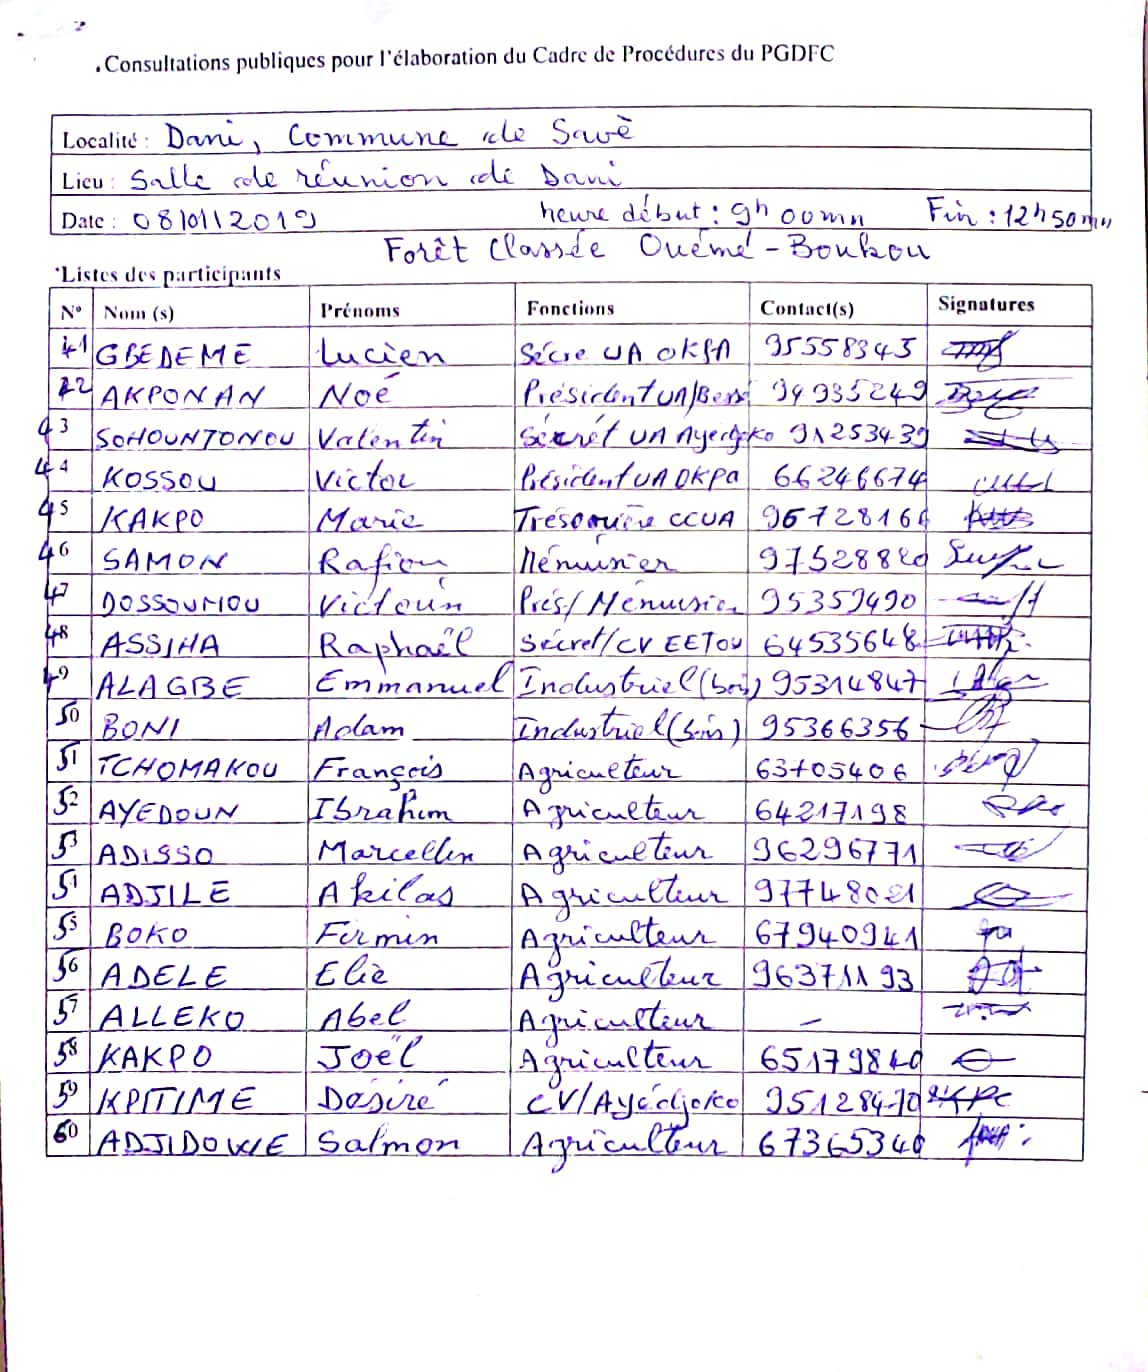 .Consultations publiques pour l'élaboration du Cadre de Procédures du PGDFC
Localité : Dani, Commune de Savè
Lieu : Salle de réunion de Dani
Date : 08/01/2019 heure début : 9h 00mn Fin : 12h50mn
Forêt Classée Ouémé-Boukou
Listes des participants
N° Nom (s) Prénoms Fonctions Contact(s) Signatures
41 GBEDEME Lucien Sécre UA OKPA 95558345
42 AKPONAN Noé Président UA/Bessé 94935249
43 SOHOUNTONOU Valentin Sécrét UA Ayedjoko 91253439
44 KOSSOU Victor Président UA OKPa 66246674
45 KAKPO Marie Trésorière CCUA
46 SAMON Rafiou Ménuisier 97528820
47 DOSSOUMOU Victorin Prés/Ménuisier 95359490
48 ASSIHA Raphaël Sécret/CV EETOU 64535648
49 ALAGBE Emmanuel Industriel (bois) 95314847
50 BONI Adam Industriel (bois) 95366356
51 TCHOMAKOU François Agriculteur 63705406
52 AYEDOUN Ibrahim Agriculteur 64217198
53 ADISSO Marcellin Agriculteur 96296771
54 ADJILE Akilas Agriculteur 97748021
55 BOKO Firmin Agriculteur 67940941
56 ADELE Elie Agriculteur 96371193
57 ALLEKO Abel Agriculteur –
58 KAKPO Joël Agriculteur 65179840
59 KPITIME Désiré CV/Ayédjoko 95128470
60 ADJIDOWE Salmon Agriculteur 67365340